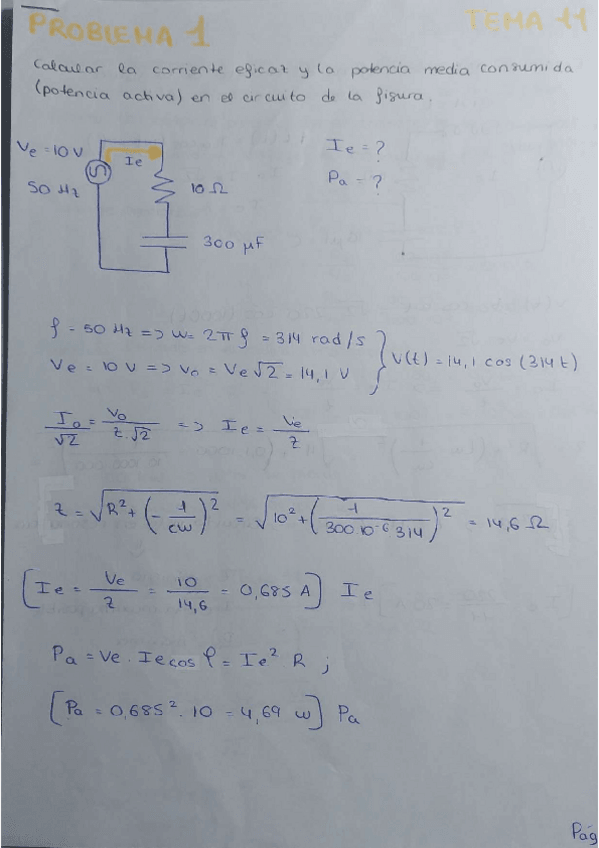 PROBLEMA 1 TEMA 11
Calcular la corriente eficaz y la potencia media consumida
(potencia activa) en el circuito de la figura.
Ve = 10 V
Ie
50 Hz
10 Ω
300 μF
Ie = ?
Pa = ?
f = 50 Hz => w = 2π f = 314 rad/s
Ve = 10 V => Vo = Ve√2 = 14,1 V } V(t) = 14,1 cos (314 t)
Io/√2 = Vo/z·√2 => Ie = Ve/z
z = √(R² + (-1/cw)²) = √(10² + (1/300·10⁻⁶ 314)²) = 14,6 Ω
[Ie = Ve/z = 10/14,6 = 0,685 A] Ie
Pa = Ve · Ie cos φ = Ie² R ;
[Pa = 0,685² · 10 = 4,69 w] Pa
Pág